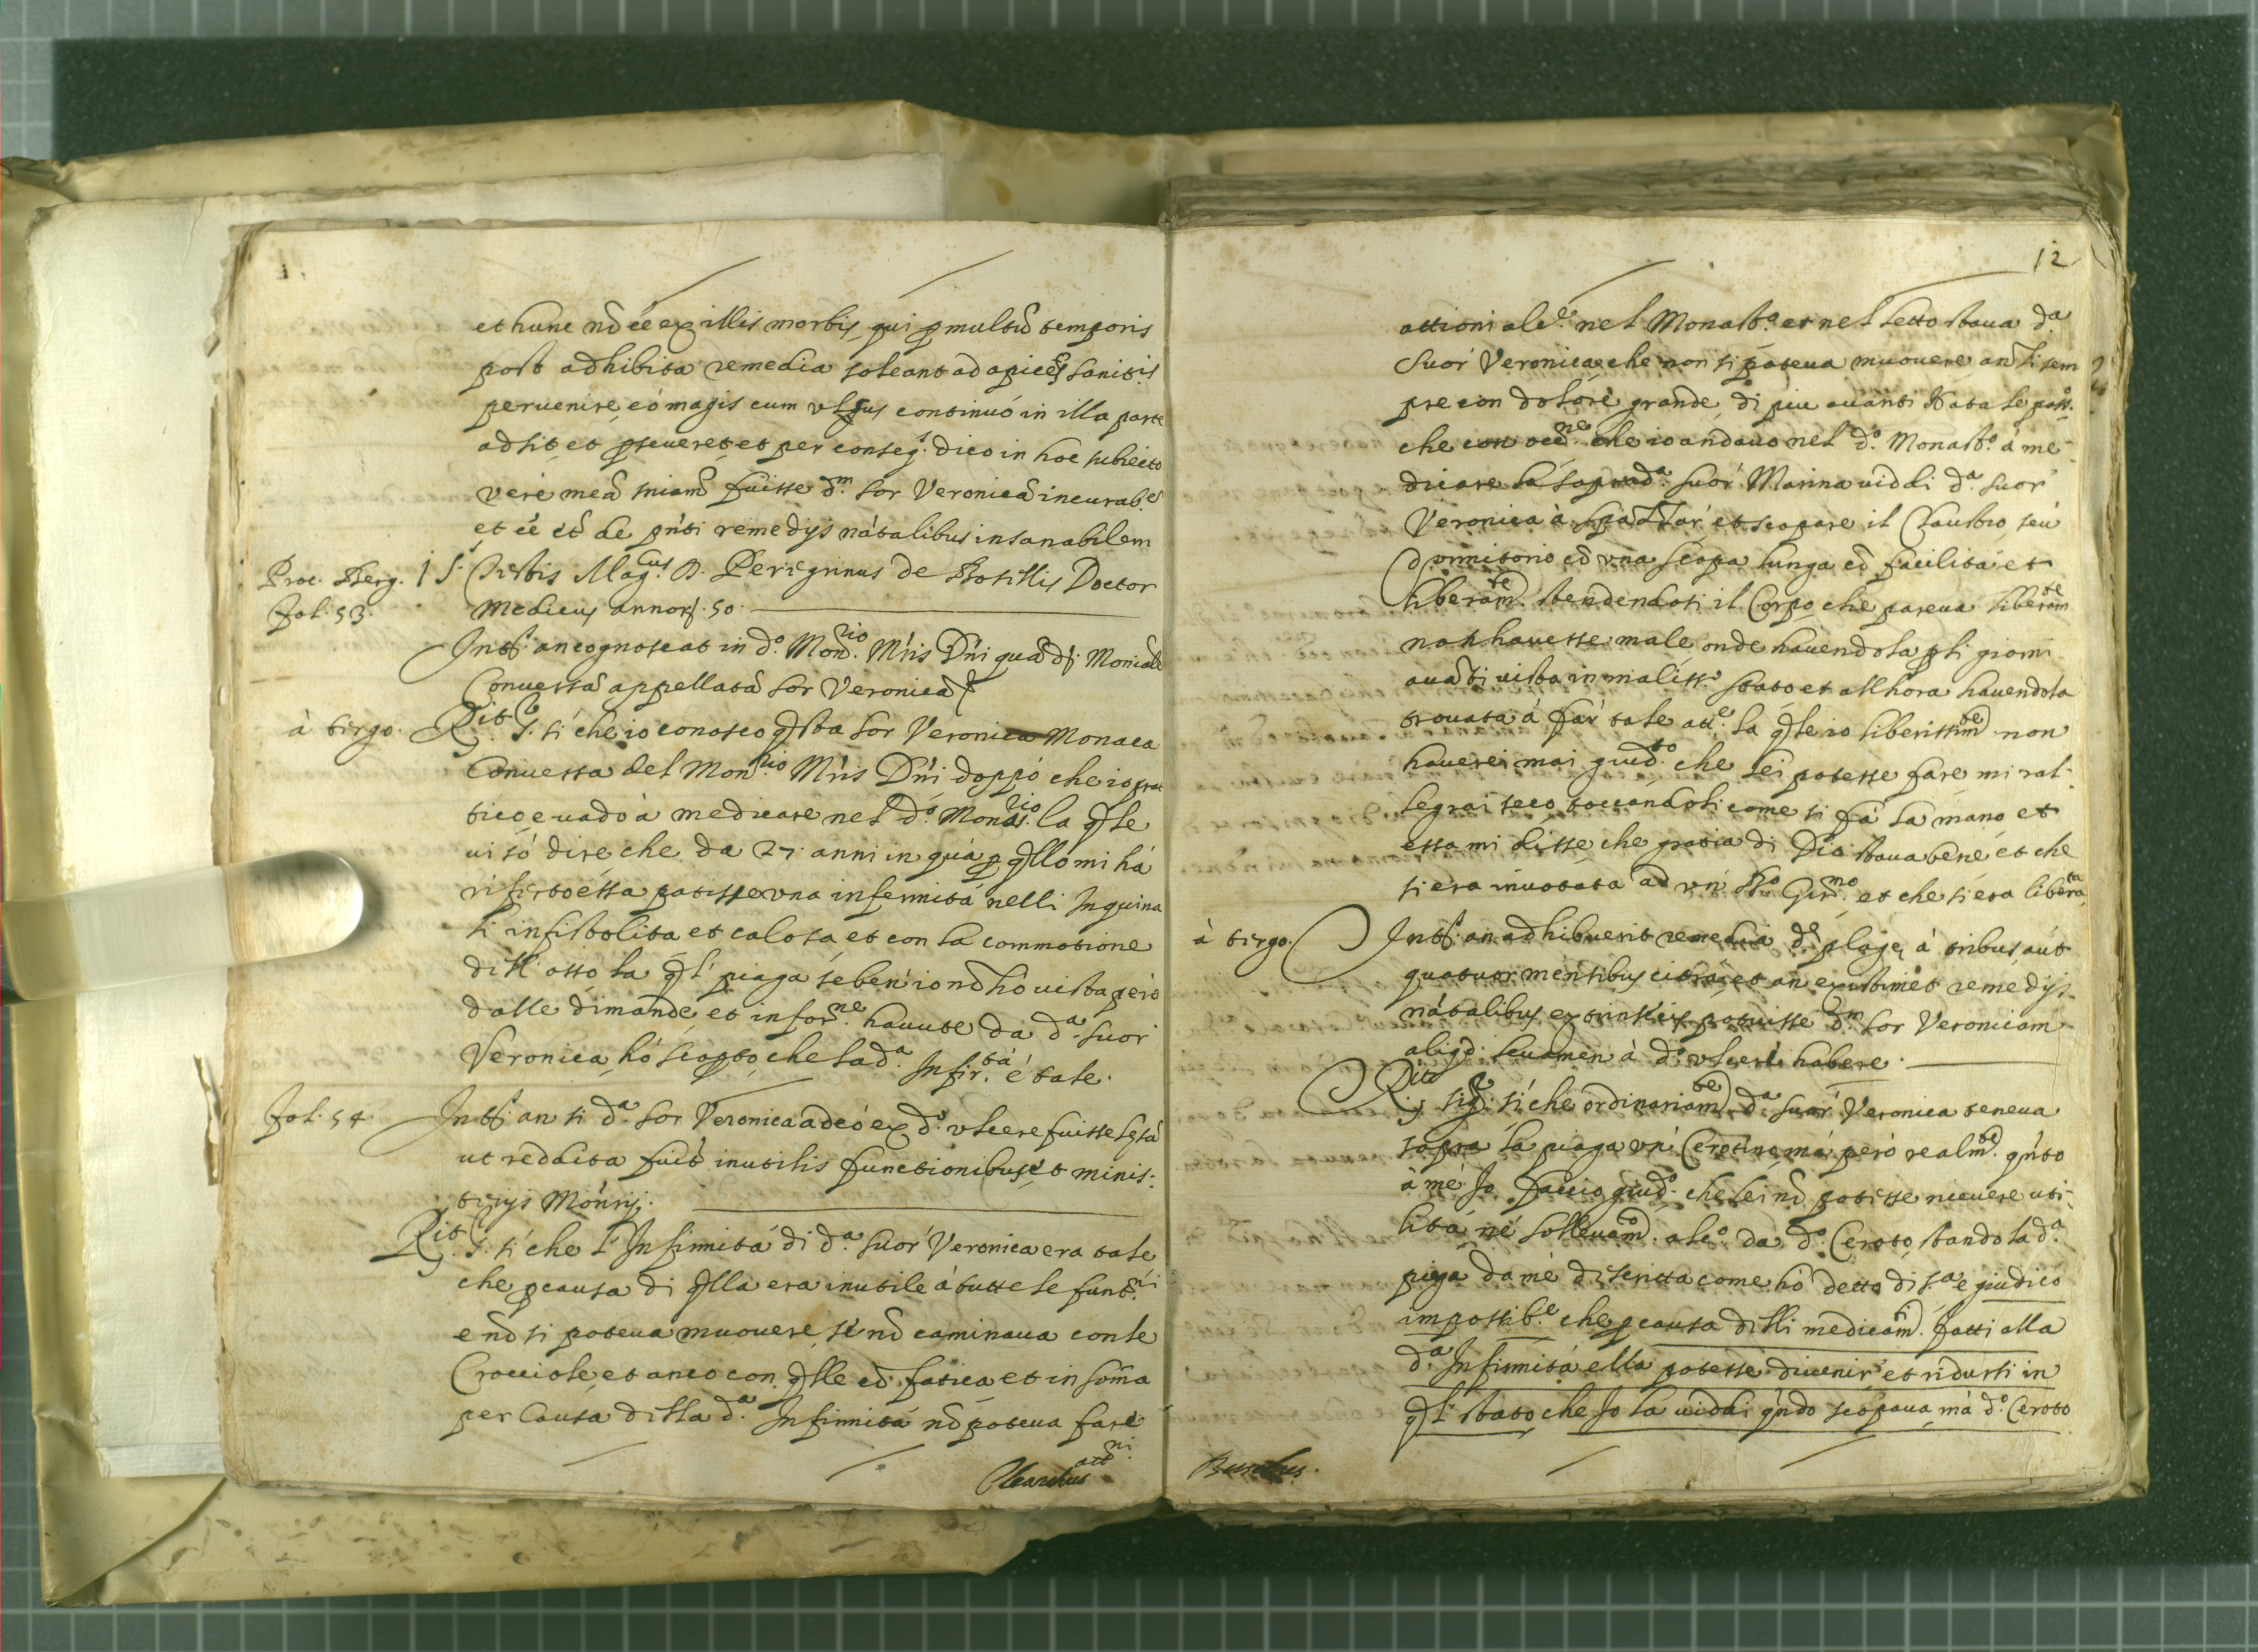 et hunc nō eē ex illis morbis, qui p multū temporis
post adhibita remedia soleant ad apicē sanitis
peruenire, eó magis cum vlcus continuó in illa parte
adsit et pseueret et per conseq. dico in hoc subiecto
veré meā sniam fuisse d.m sor Veronicā incurab.e
et eē et de pnti remedijs nãtalibus insanabilem
Proc. Berg. 1 5. Testis Mag.cus D. Peregrinus de Bosellis Doctor
fol. 53. Medicus annoɤ. 50.
Intt. an cognoscat in d.o Mon.rio Mris Dñi quādɤ Moniale
Conuersā appellatā sor Veronicā
à tergo. R.it S. sí che io conosco qsta sor Veronica Monaca
Conuersa del Mon.rio Mris Dñi doppó che io prat
tico, e uado à medicare nel d.o Monas.rio la qle
ui só dire che da 27 anni in quà p qllo mi há
riferto essa patisse una infermità nelli Inguina
li infistolita et calosa, et con la commotione
dell' osso la ql piaga se ben io nō hó uista però
dalle dimande, et infor.ne hauute da d.a suor
Veronica, hó scopto, che la d.a Infir.tá é tale.
fol. 54. Intt. an si d.a sor Veronica adeó ex d.o vlcere fuisse lęsa
ut reddita fuit inutilis functionibus et minis-
terijs Mon.rij.
R.it S. sí che l' Infirmitá di d.a suor Veronica era tale
che p causa di qlla era inutile á tutte le funt.ni
e nō si poteua muouere, se nō caminaua con le
Crocciole, et anco con qlle cō fatica et in soma
per causa dilla d.a Infirmitá nō poteua fare
att.ni
12
attioni alc.e nel Monast.o et nel letto staua d.a
Suor Veronica che non si poteua muouere anzi sem
pre con dolore grande, di piu auanti Natale pass.o
che con occ.ne che io andauo nel d.o Monast.o á me-
dicare la soprad.a suor Marina uiddi d.a suor
Veronica à spazzar et scopare il Claustro, seu
dormitorio cō una scopa lunga cō facilitá et
liberam.te stendendosi il Corpo che pareua liberam.te
non hauesse male, onde hauendola pli giorni
auāti uista in maliss.o stato et allhora hauendola
trouata á far tale att.e la qle io liberissim.te non
hauerei mai giud.to che lei potesse fare mi ral-
legrai seco, toccandoli come si fá la mano, et
essa mi disse che gratia di Dio staua bene, et che
si era inuotata ad vn' B.to Gir.mo et che si era libera.ta
à tergo. Intt. an adhibuerit remedia d.ę plagę, à tribus aut
quatuor mensibus citra, et an existimet remedijs
nãtalibus extrinsecis potuisse d.m sor Veronicam
aliqd. leuamen à d.o vlcere habere.
R.it sig. sí che ordinariam.te d.a suor Veronica teneua
sopra la piaga un' Cerotino, má però realm.te qnto
à mé Io faccio giud.o che lei nō potesse riceuere uti-
litá né solleuam.to alc.o da d.o Ceroto, stando la d.a
piaga da mé discritta come hó detto di s.a e giudico
impossib.e che p causa dilli medicam.ti fatti alla
d.a Infirmitá ella potesse diuenir et ridursi in
ql stato che Io la uiddi qndo scopaua, má d.o Ceroto